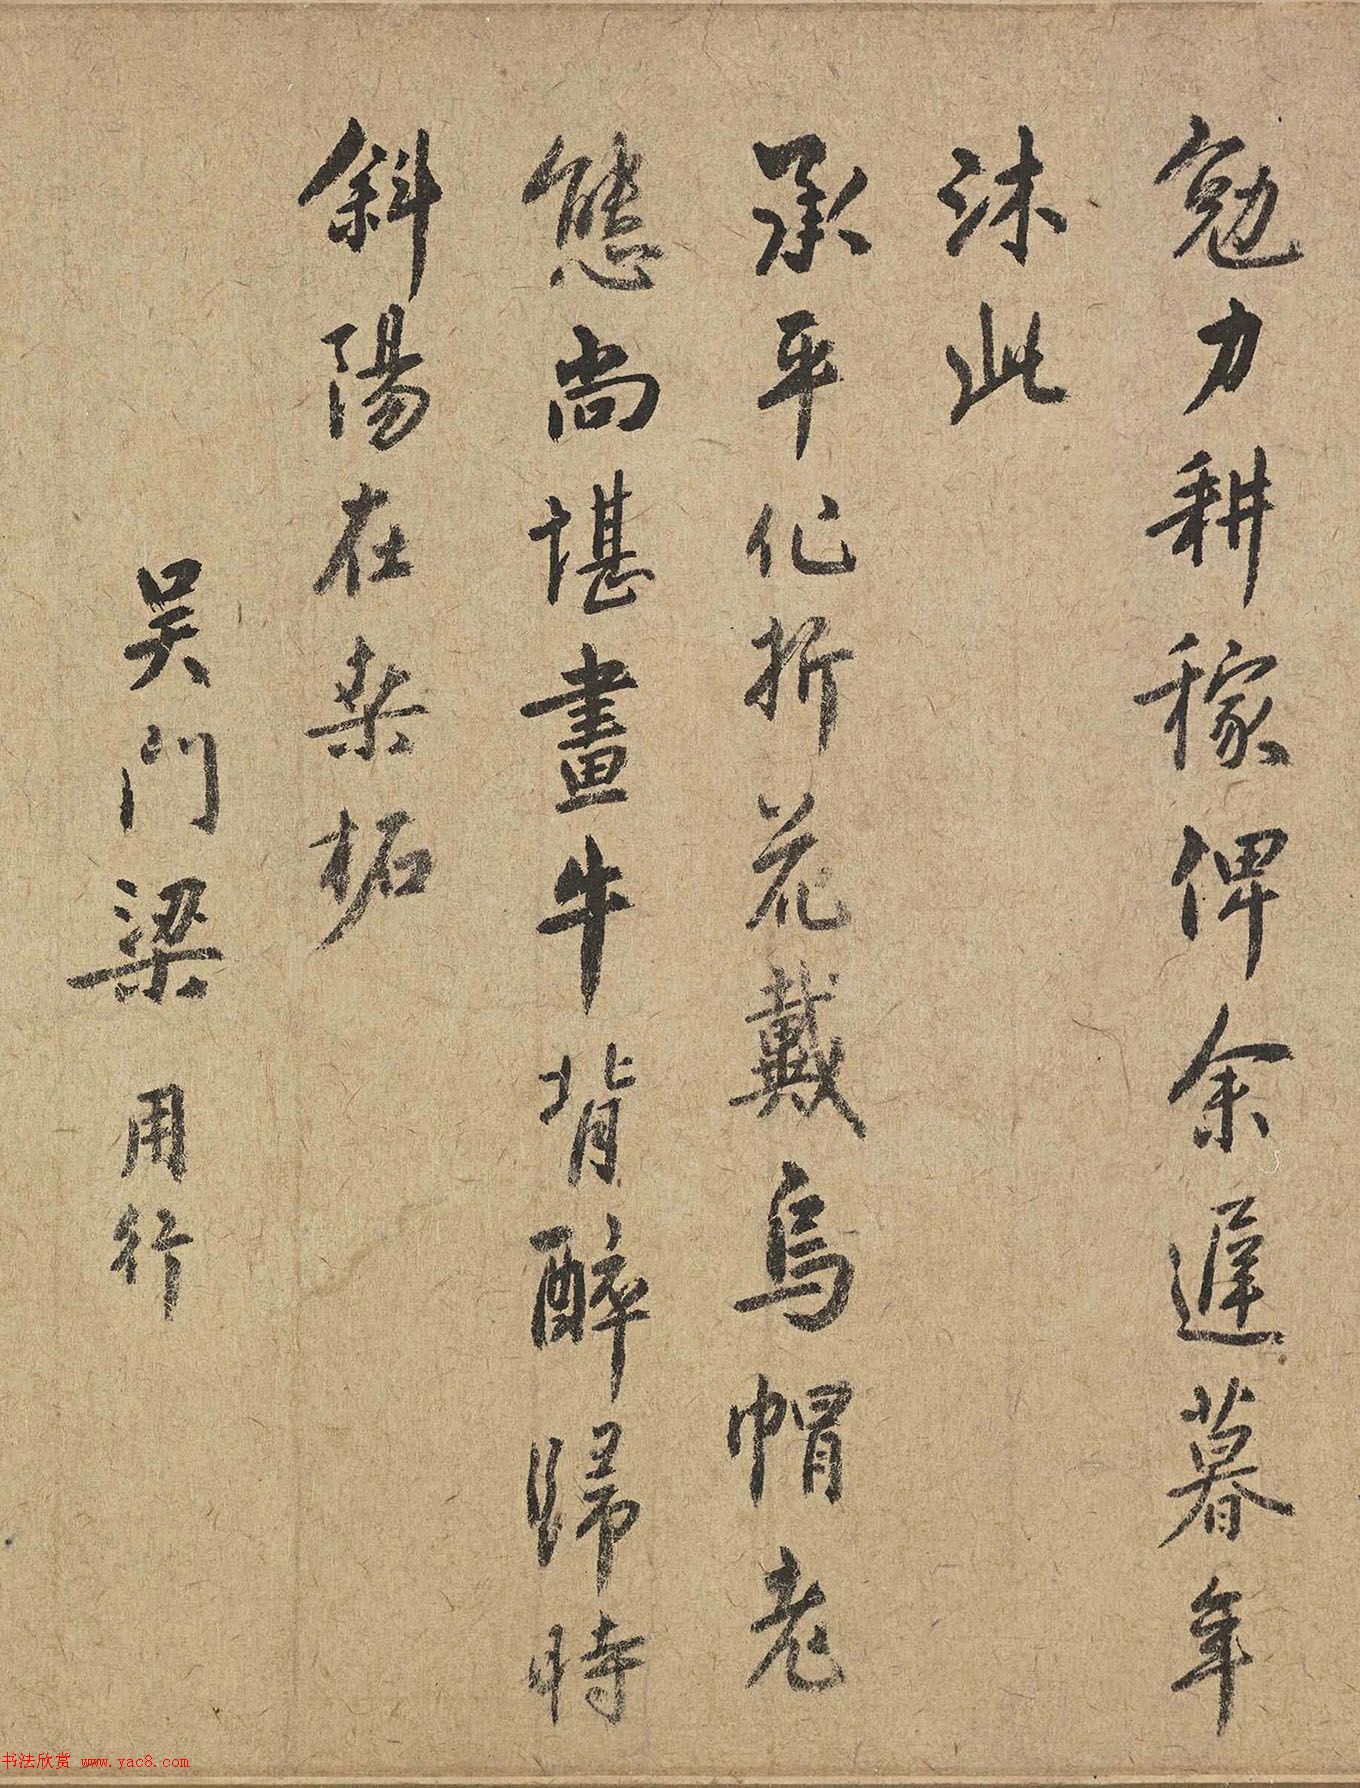 勉力耕稼俾余遲暮年
沐此
承平化折花戴烏帽老
態尚堪畫牛背醉歸時
斜陽在桒柘
吴門梁用行
书法欣赏 www.yac8.com